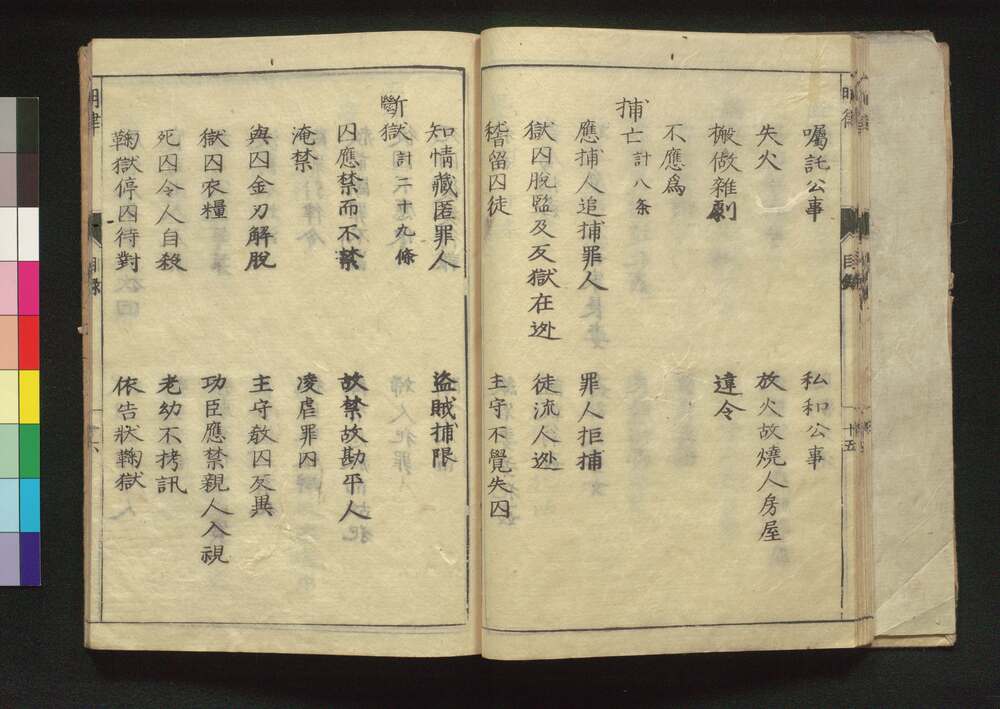 囑託公事　私和公事
失火　放火故燒人房屋
搬做雜劇　違令
不應爲
捕亡計八条
應捕人追捕罪人　罪人拒捕
獄囚脫監及反獄在逃　徒流人逃
稽留囚徒　主守不覺失囚
知情藏匿罪人　盜賊捕限
斷獄計二十九條
囚應禁而不禁　故禁故勘平人
淹禁　凌虐罪囚
與囚金刃解脫　主守敎囚反異
獄囚衣糧　功臣應禁親人入視
死囚令人自殺　老幼不拷訊
鞫獄停囚待對　依告狀鞫獄
明律　目録